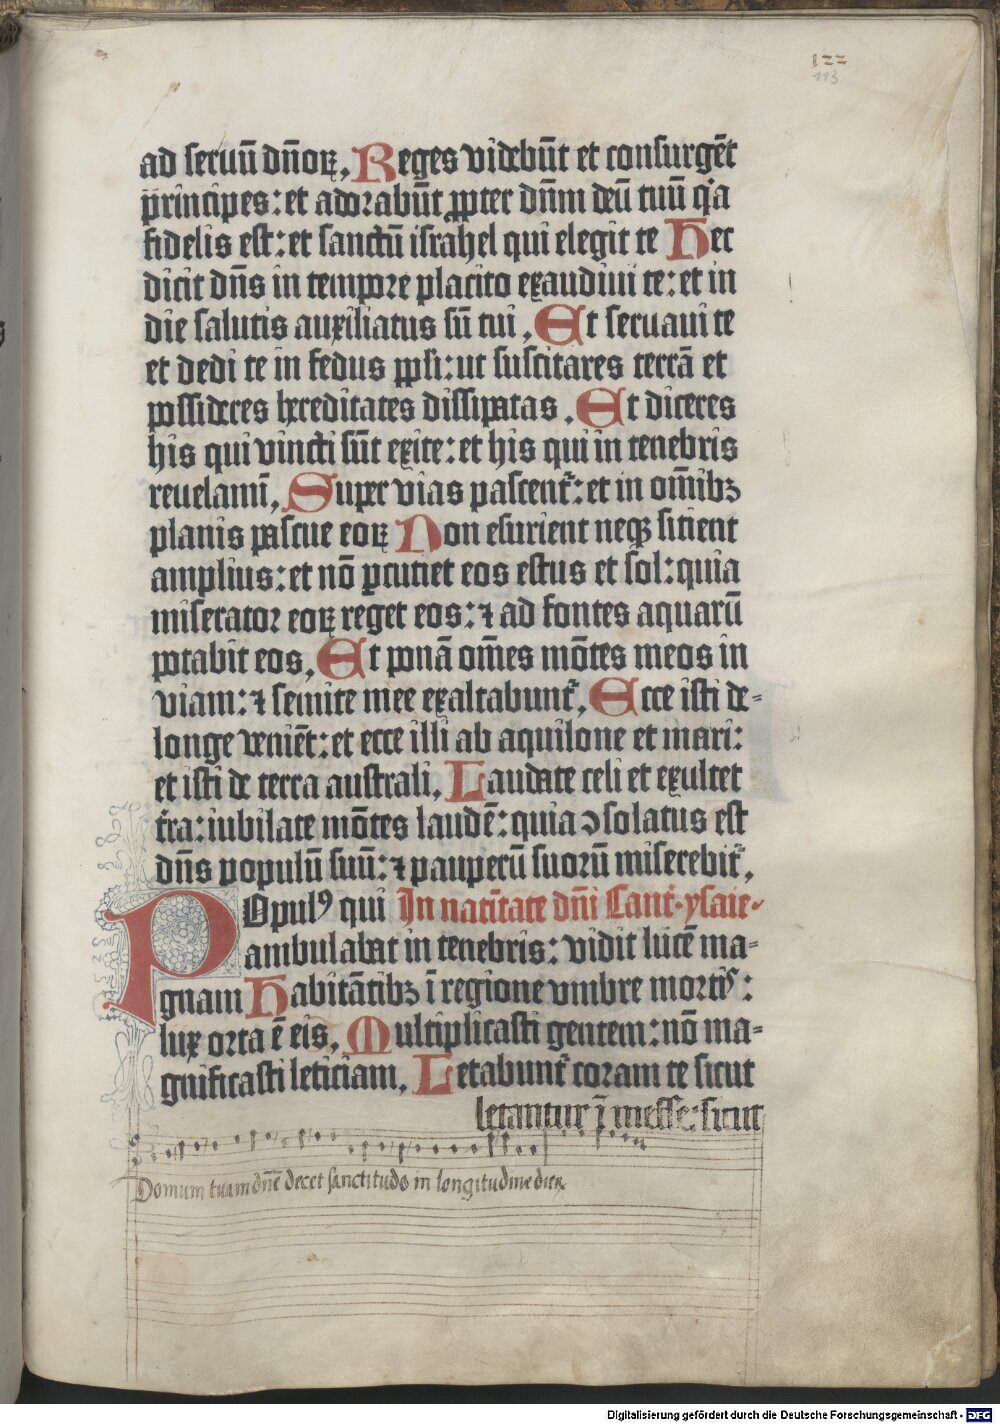 122
113
ad seruū dn̄oꝝ, Reges videbūt et consurgēt
principes: et adorabūt ꝓpter dn̄m deū tuū qͥa
fidelis est: et sanctū israhel qui elegit te Hec
dicit dn̄s in tempore placito exaudiui te: et in
die salutis auxiliatus sū tui, Et seruaui te
et dedi te in fedus ppl̄i: ut suscitares terrā et
possideres hereditates dissipatas, Et diceres
his qui vincti sūt exite: et his qui in tenebris
reuelamī, Super vias pascentᷣ: et in om̄ibꝫ
planis pascue eoꝝ Non esurient neqꝫ sitient
amplius: et nō ꝑcutiet eos estus et sol: quia
miserator eoꝝ reget eos: ⁊ ad fontes aquarū
potabit eos, Et ponā om̄es mōtes meos in
viam: ⁊ semite mee exaltabuntᷣ, Ecce isti de-
longe veniēt: et ecce illi ab aquilone et mari:
et isti de terra australi, Laudate celi et exultet
t̄ra: iubilate mōtes laudē: quia ↄsolatus est
dn̄s populū suū: ⁊ pauperū suorū miserebitᷣ,
Populꝰ qui In natītate dn̄i Cant· ysaie
ambulabat in tenebris: vidit lucē ma-
gnam Habitātibꝫ ī regione vmbre mortis:
lux orta ē eis, Multiplicasti gentem: nō ma-
gnificasti leticiam, Letabuntᷣ coram te sicut
letantur ī messe: sicut
Domum tuam dn̄e decet sanctitudo in longitudine dieꝝ
Digitalisierung gefördert durch die Deutsche Forschungsgemeinschaft - DFG